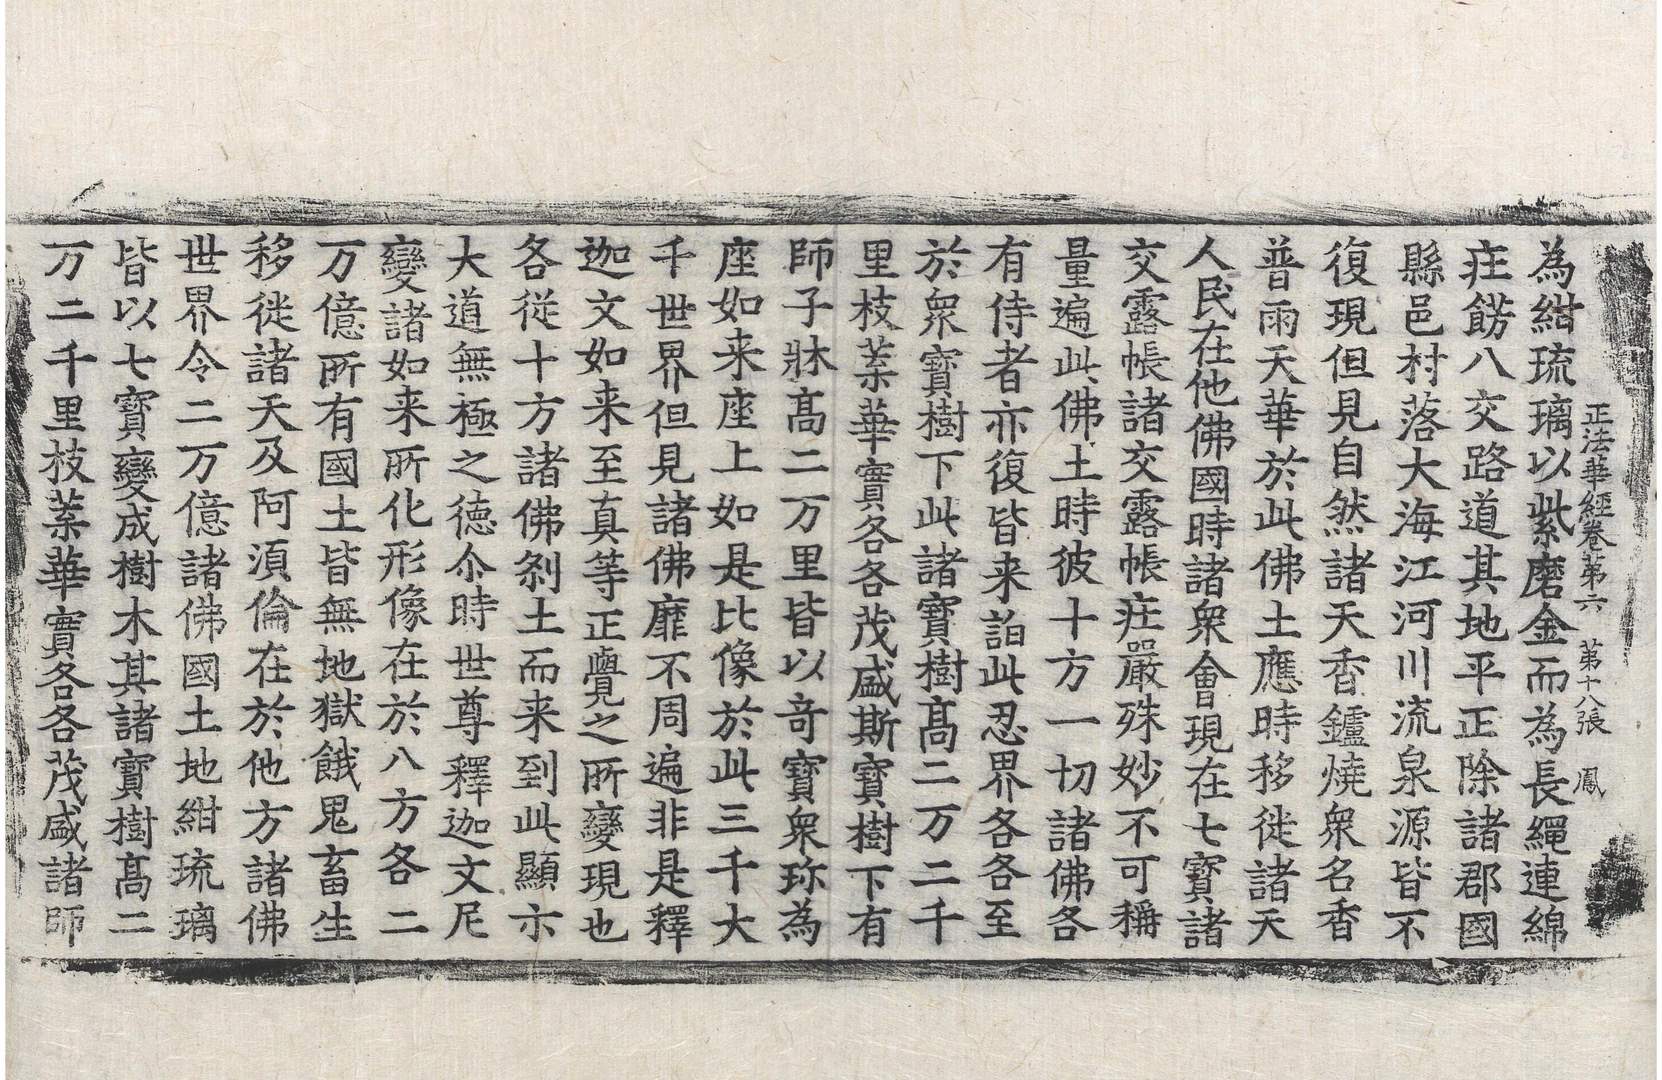 正法華經卷第六 第十八張 鳳
為紺琉璃以紫磨金而為長繩連綿
庄餝八交路道其地平正除諸郡國
縣邑村落大海江河川流泉源皆不
復現但見自然諸天香鑪燒衆名香
普雨天華於此佛土應時移徙諸天
人民在他佛國時諸衆會現在七寶諸
交露帳諸交露帳庄嚴殊妙不可稱
量遍此佛土時彼十方一切諸佛各
有侍者亦復皆来詣此忍界各各至
於衆寶樹下此諸寶樹髙二万二千
里枝葉華實各各茂盛斯寶樹下有
師子牀髙二万里皆以奇寶衆珎為
座如来座上如是比像於此三千大
千世界但見諸佛靡不周遍非是釋
迦文如来至真等正覺之所變現也
各従十方諸佛刹土而来到此顯示
大道無極之德尒時世尊釋迦文尼
變諸如来所化形像在於八方各二
万億所有國土皆無地獄餓鬼畜生
移徙諸天及阿須倫在於他方諸佛
世界令二万億諸佛國土地紺琉璃
皆以七寶變成樹木其諸寶樹髙二
万二千里枝葉華實各各茂盛諸師